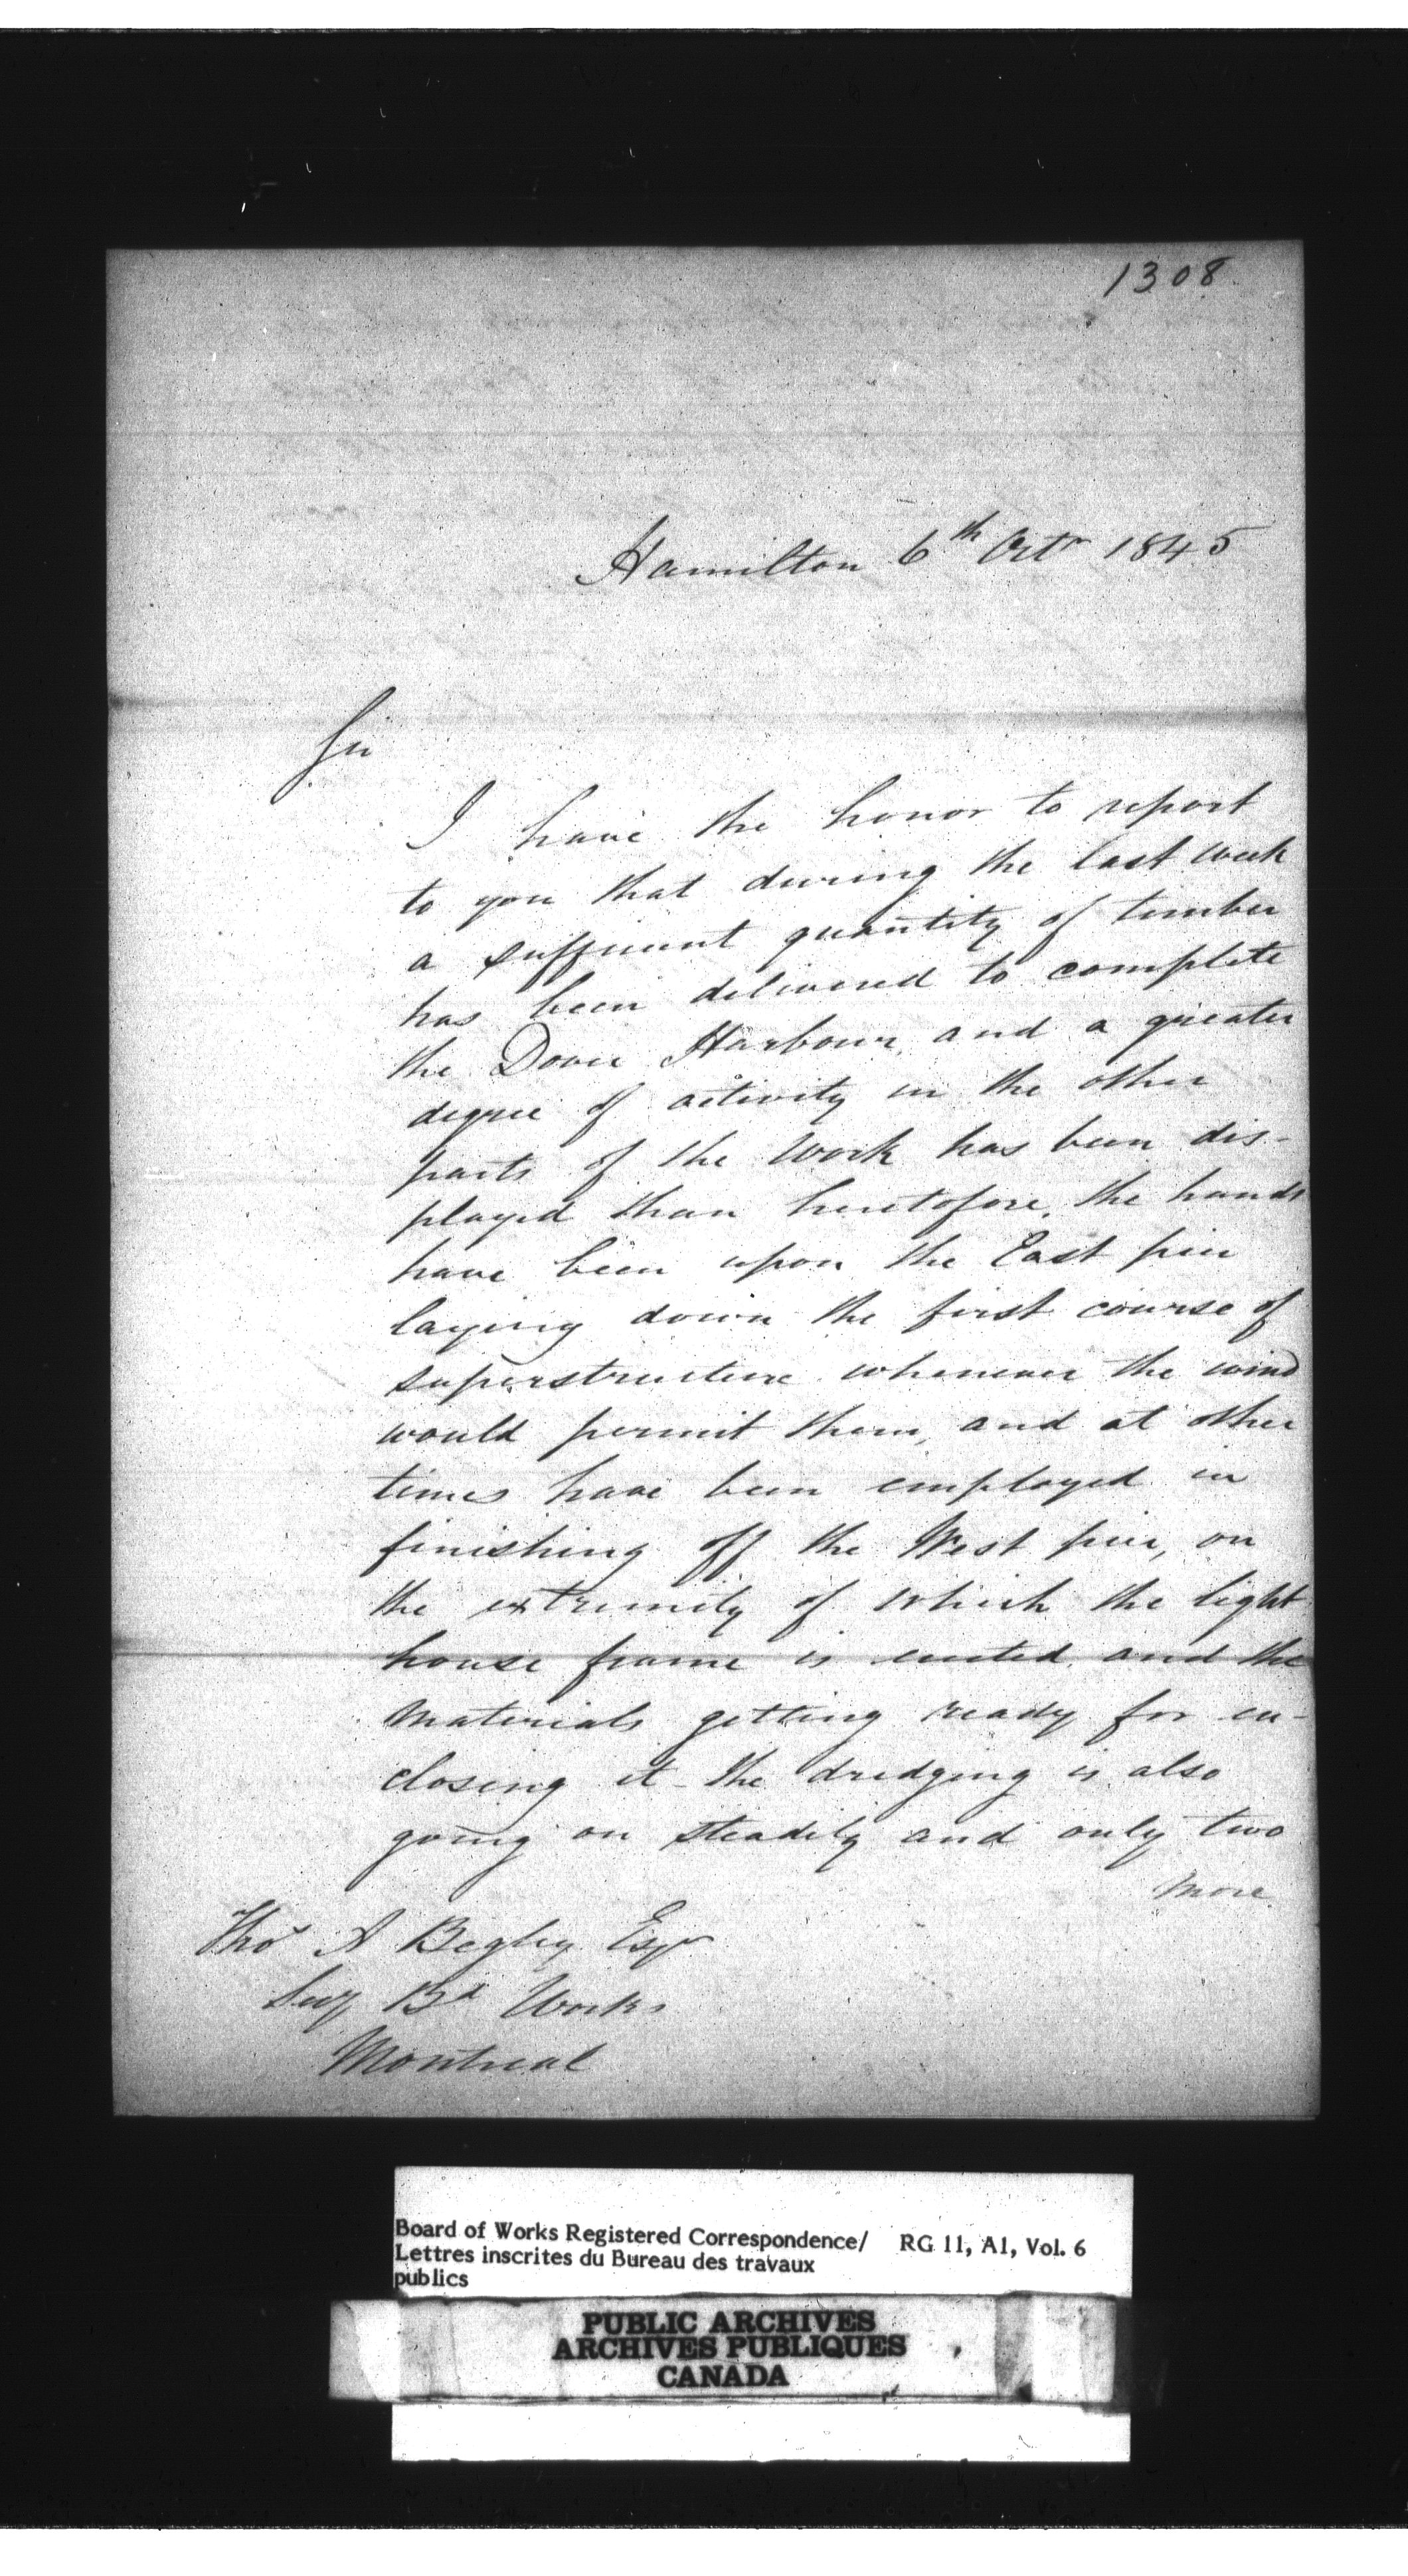 1308
Hamilton 6th Octr 1845
Sir
I have the honor to report
to you that during the last week
a sufficient quantity of timber
has been delivered to complete
the Dover Harbour, and a greater
degree of activity in the other
parts of the Work has been dis-
played than heretofore, the hands
have been upon the East pier
laying down the first course of
superstructure whenever the wind
would permit them, and at other
times have been employed in
finishing off the West pier, on
the extremity of which the light
house frame is erected and the
materials getting ready for en-
closing it - the dredging is also
going on steadily and only two
more
Thos A Begley Esqr
Secy Bd Works
Montreal
Board of Works Registered Correspondence/ RG 11, A1, Vol. 6
Lettres inscrites du Bureau des travaux
publics
PUBLIC ARCHIVES
ARCHIVES PUBLIQUES
CANADA